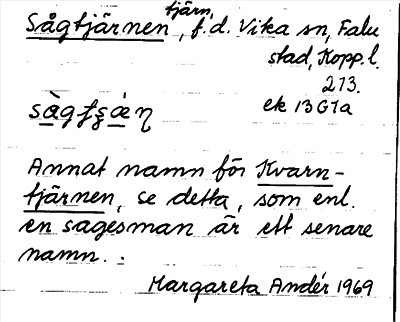 Sågtjärnen, tjärn, f.d. Vika sn, Falu
stad, Kopp.l.
273.
ek 13G1a
Annat namn för Kvarn-
tjärnen, se detta, som enl.
en sagesman är ett senare
namn.
Margareta Andér 1969